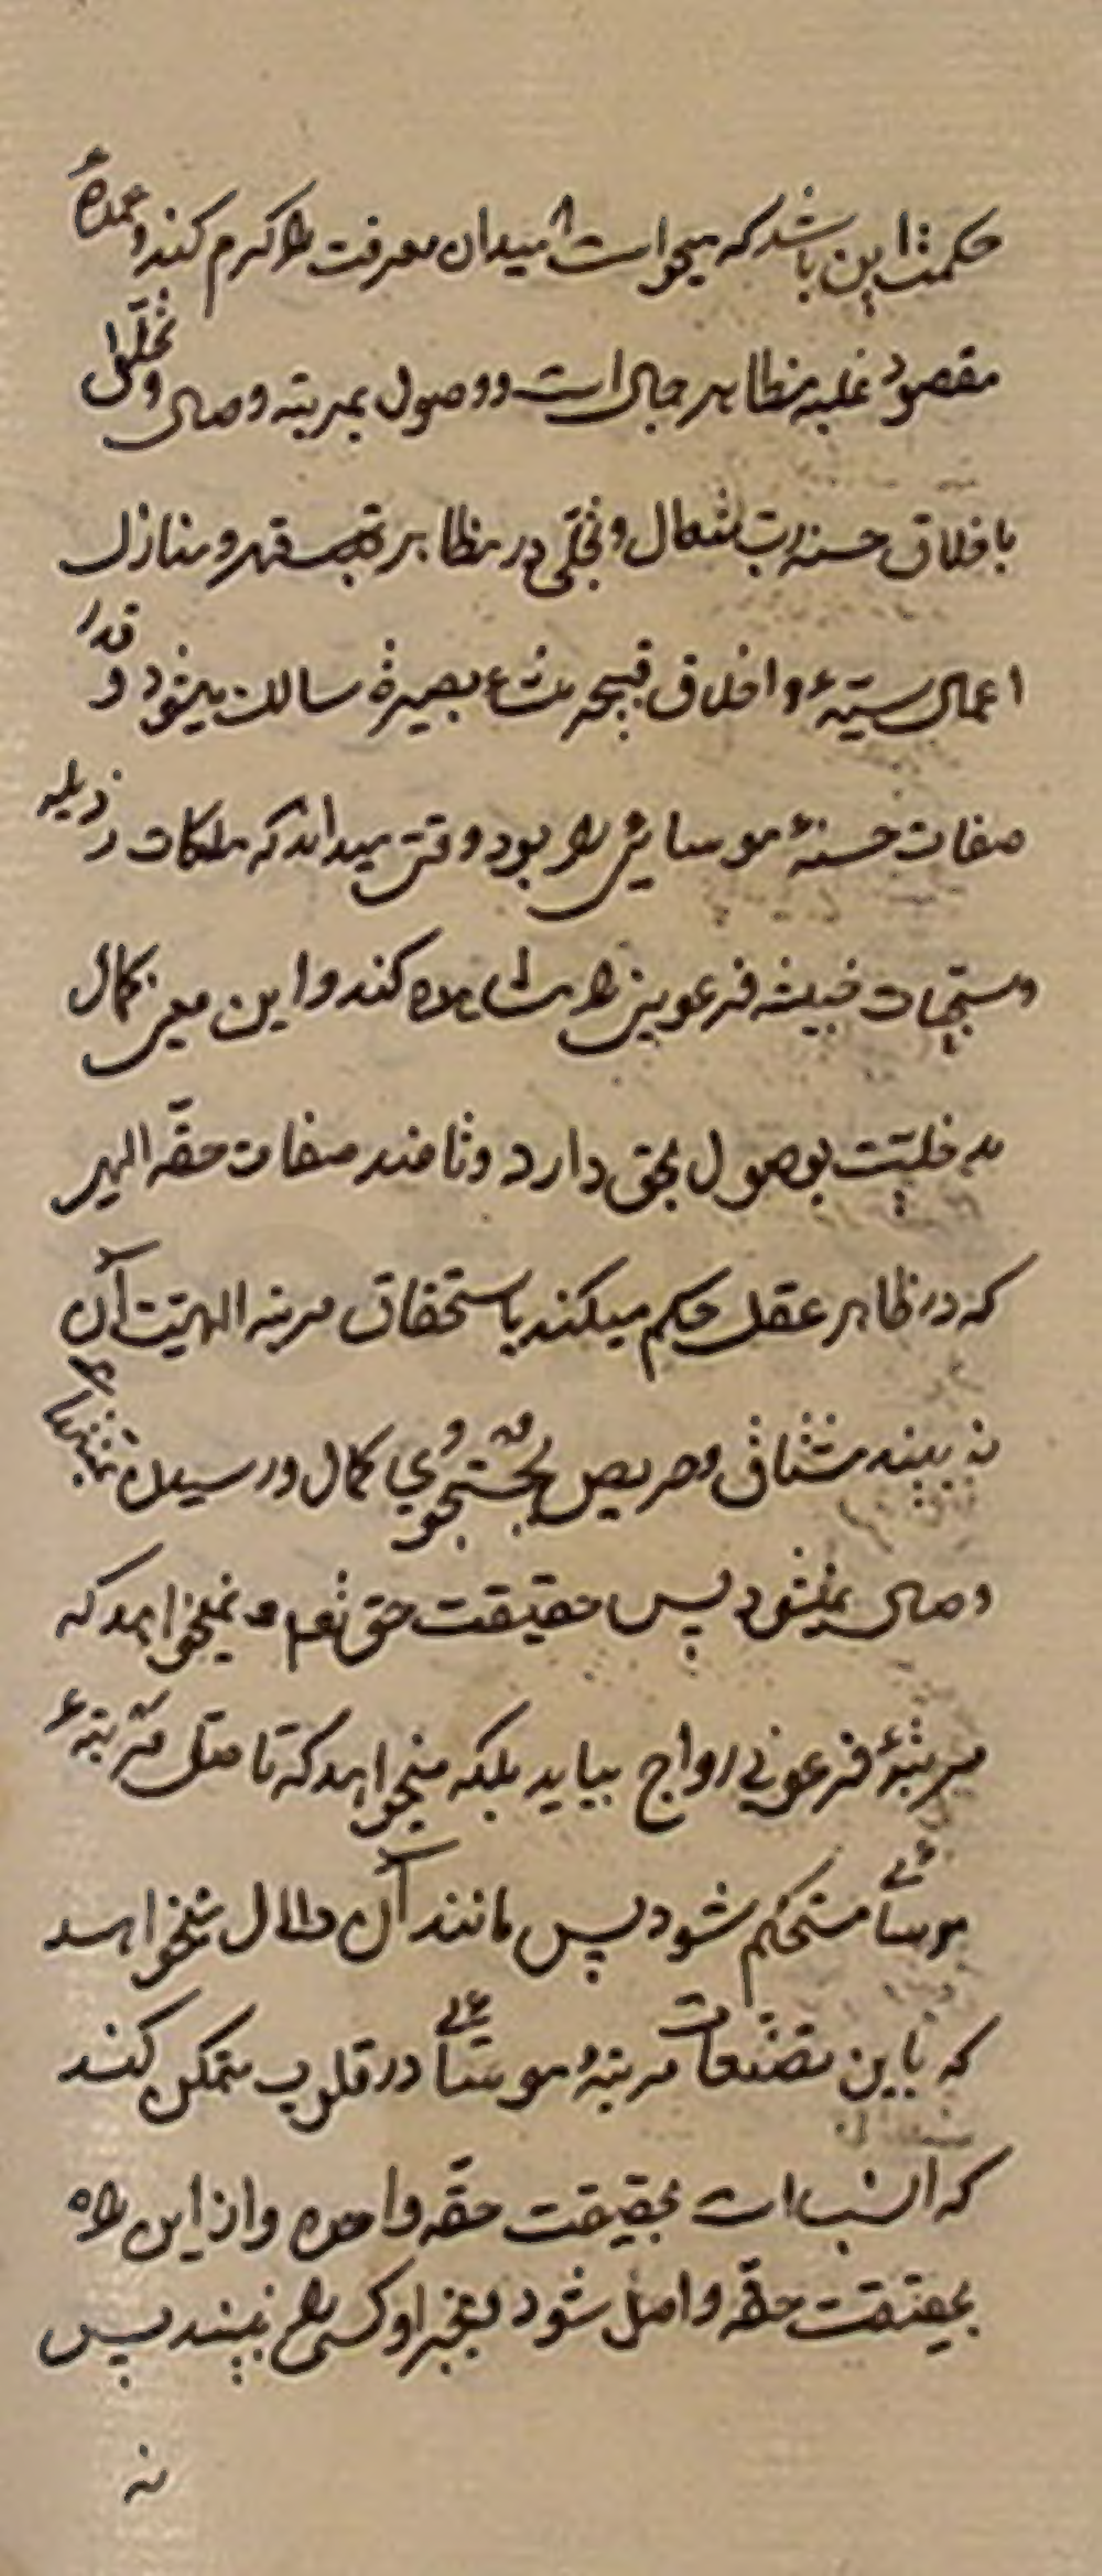 حکمت این باشد که میخواست میدان معرفت را کرم کند و عمدهٔ
مقصود غلبه مظاهر جمال است و وصول بمرتبه وصال و تخلق
باخلاق حسنه رب متعال و تجلی در مظاهر قهر و منازل
اعمال سیّئه و اخلاق قبیحه بصیرة سالک میشود و قدر
صفات حسنهٔ موسائی را بود وقتی میداند که ملکات رذیله
خبیثه فرعونی را مشاهده کند و این معنی کمال
مدخلیّت بوصول بحق دارد و تا ضد صفات حقّه الهی
که در ظاهر عقل حکم میکند باستحقاق مرتبه الهیّت آن
نه بیند مشتاق و حریص بجستجوی کمال و رسیدن
وصال نمیشود پس حقیقت حق نمیخواهد که
مرتبهٔ فرعونی رواج بیابد بلکه میخواهد که تا مرتبهٔ
موسا مستحکم شود پس مانند آن میخواهد
که باین تصنّعات مرتبهٔ موسا در قلوب متمکن کند
که انسب است بحقیقت حقّه واحده و از این راه
بحقیقت حقّه واصل شود بغیر او کسی را نبیند پس
نه